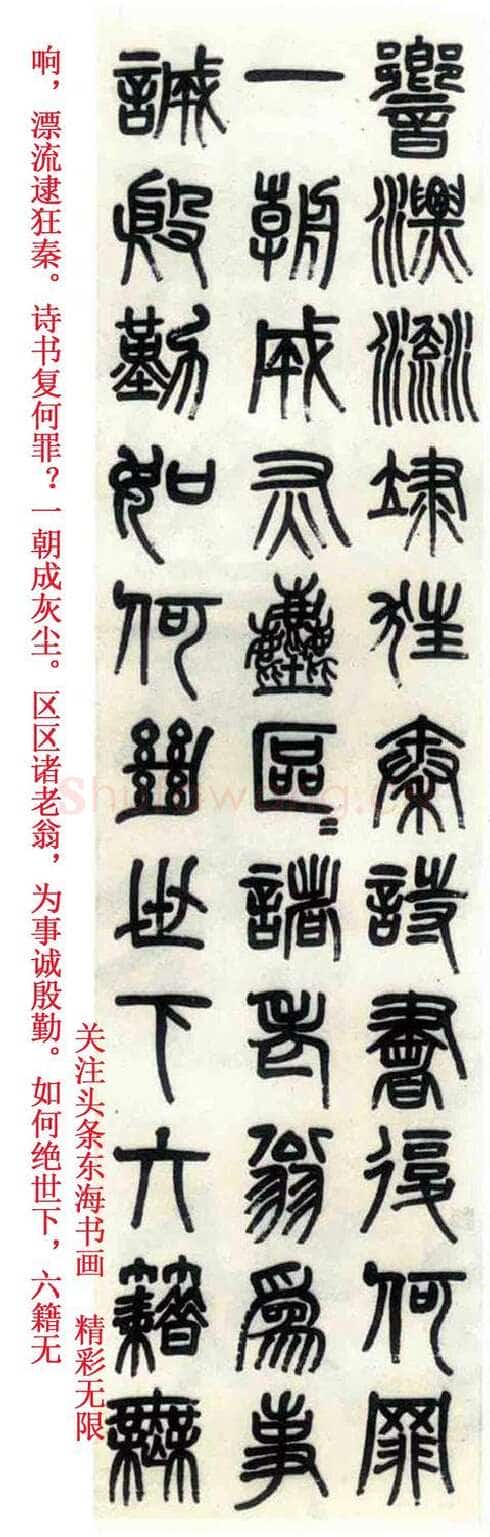 響漂流逮狂秦詩書復何罪
一朝成灰塵區〓諸老翁爲事
誠殷勤如何絕世下六籍無
响，漂流逮狂秦。诗书复何罪？一朝成灰尘。区区诸老翁，为事诚殷勤。如何绝世下，六籍无
关注头条东海书画 精彩无限